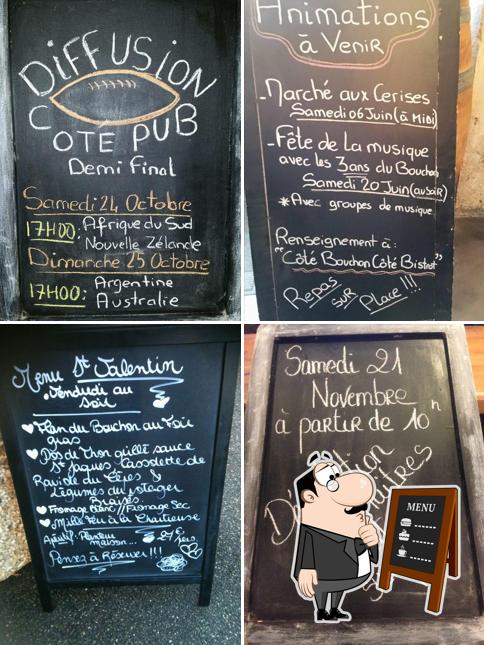 DiFFUSiON
COTE PUB
Demi Final
Samedi 24 Octobre
17H00: Afrique du Sud
Nouvelle Zélande
Dimanche 25 Octobre
17H00: Argentine
Australie
Animations
à VeniR
-Marché aux Cerises
Samedi 06 Juin (à MiDi)
-Fête de la musique
avec les 3 ans du Bouchon
Samedi 20 Juin (au soiR)
*Avec groupes de musique
Renseignement à:
"Côté Bouchon Côté Bistrot"
Repas
suR
Place!!!
Menu St Valentin
Vendredi au
Soir
Flan du Bouchon au Foie
gras
Dos de Thon grillé sauce
St Jaques Cassolette de
Légumes du potager
Fromage Blanc // Fromage Sec
Mille Feu à la Chartreuse
maison...
Pensez à Réserver!!!
Samedi 21
Novembre
à partir de 10h
MENU